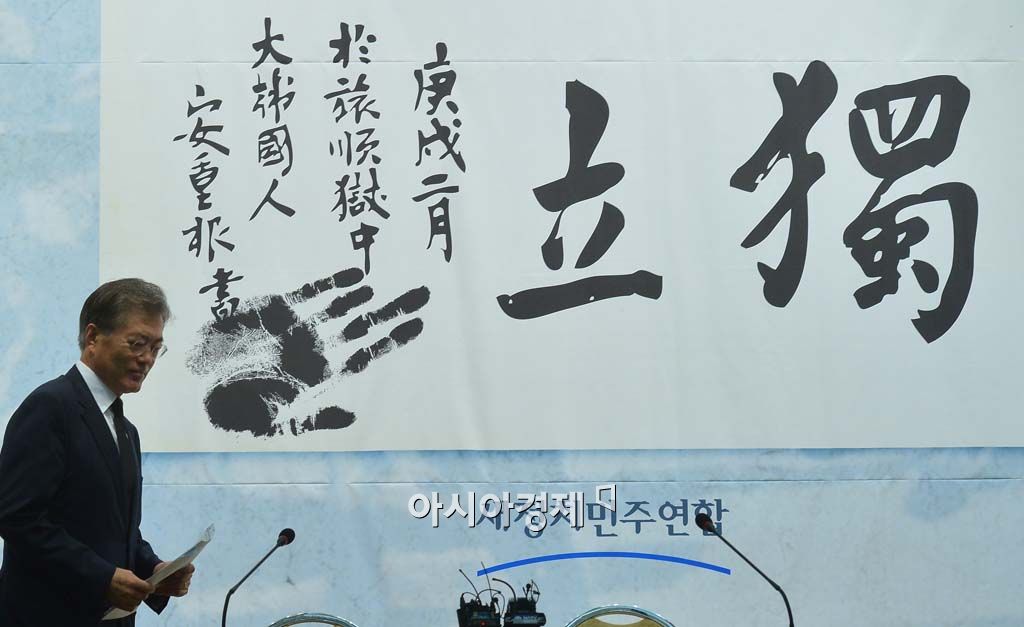 獨立
庚戌二月
於旅順獄中
大韓國人
安重根書
새정치민주연합
아시아경제